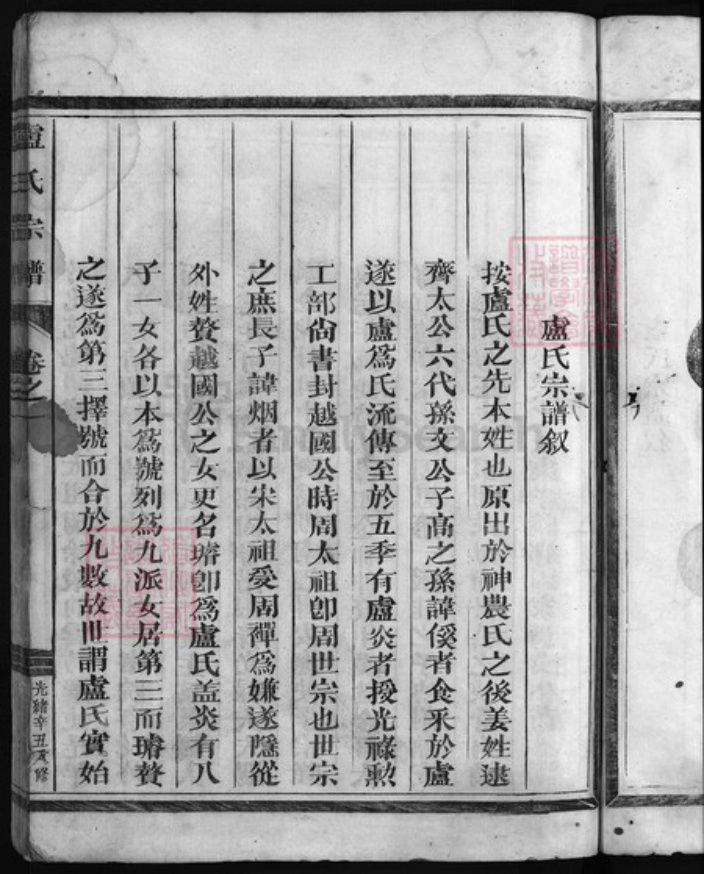 盧氏宗譜叙
按盧氏之先本姓也原出於神農氏之後姜姓逮
齊太公六代孫文公子高之孫諱傒者食采於盧
遂以盧爲氏流傳至於五季有盧炎者授光祿勲
工部尙書封越國公時周太祖卽周世宗也世宗
之庶長子諱烟者以宋太祖受周禪爲嫌遂隱從
外姓贅越國公之女更名璿卽爲盧氏盖炎有八
子一女各以本爲號列爲九派女居第三而璿贅
之遂爲第三擇號而合於九數故卌謂盧氏實始
盧氏宗譜
卷之
光緒辛丑重修